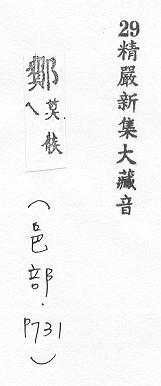 29精嚴新集大藏音
莫
(邑部.P731)